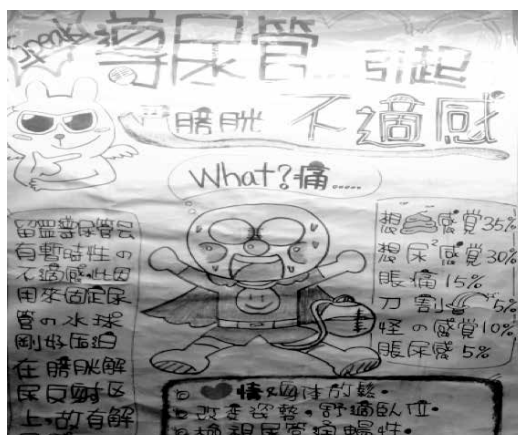 導尿管...引起
膀胱 不適感
What?痛.....
留置導尿管會
有暫時性の
不適感,此因
用來固定尿
管の水球
剛好壓迫
在膀胱解
尿反射区
上,故有解
想 感覚35%
想尿感覚30%
脹痛15%
刀割 5%
怪の感覚10%
脹尿感5%
放鬆.
改变姿勢.舒適臥位.
檢視尿管通暢性.